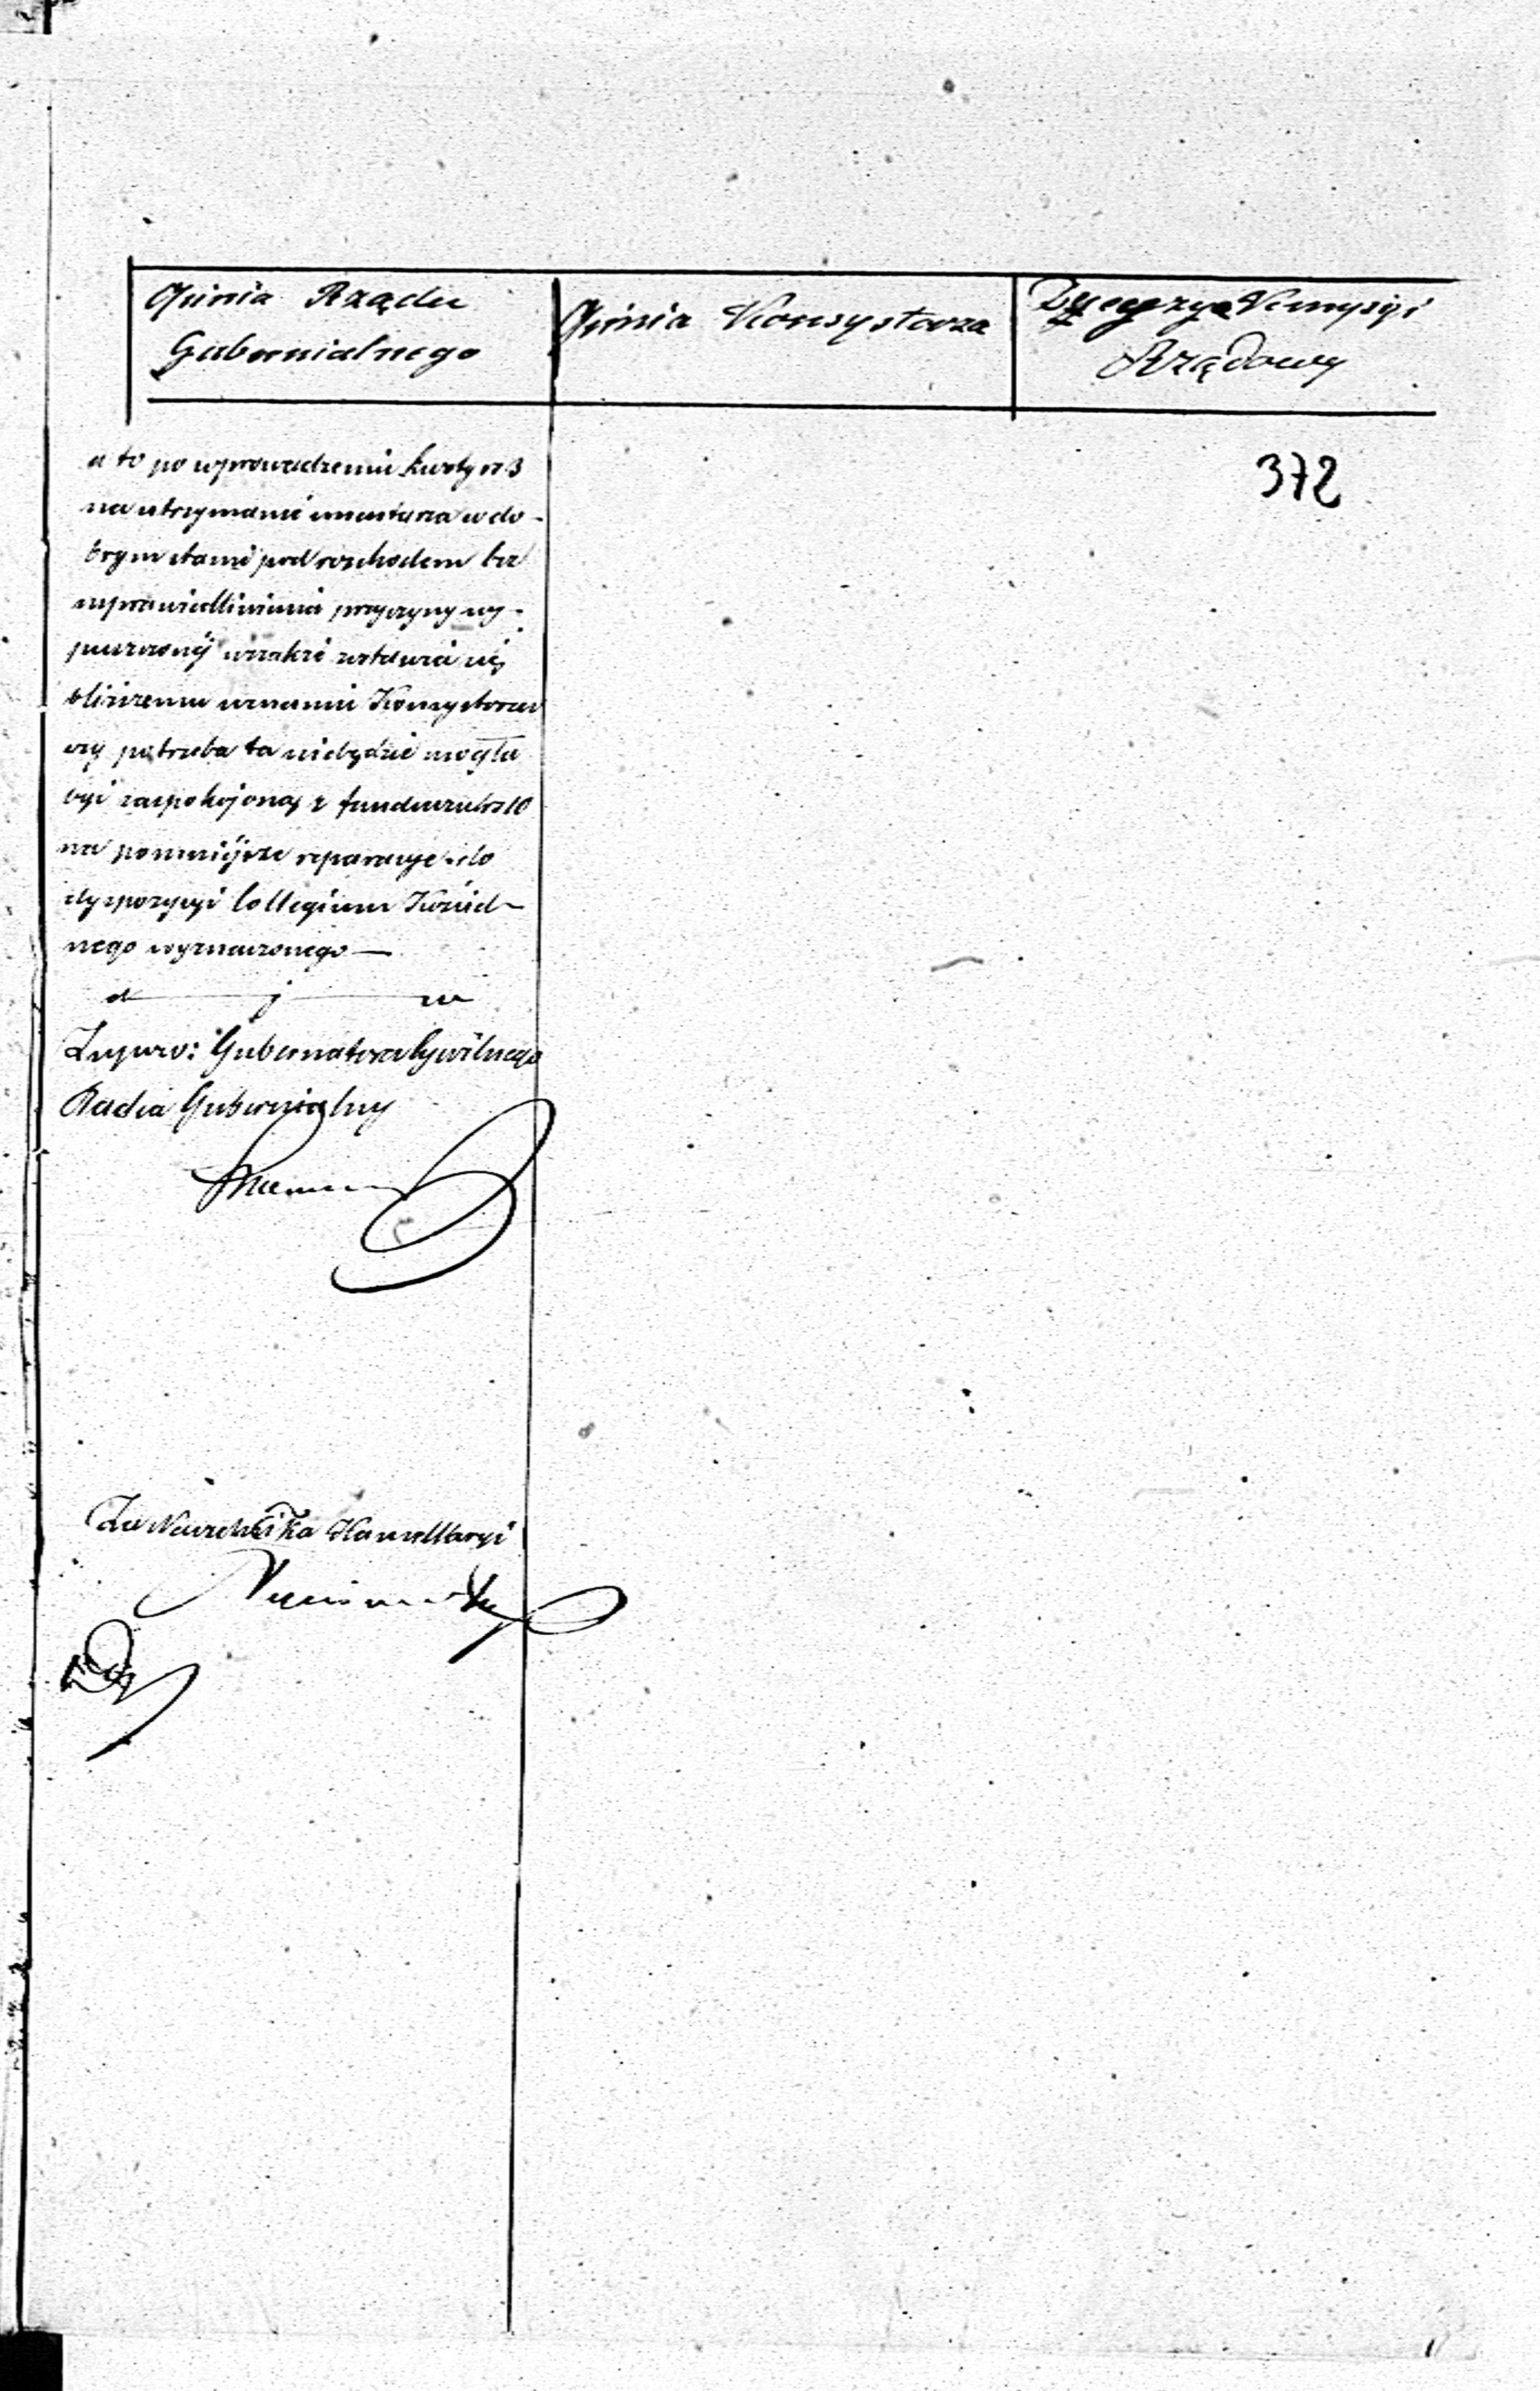 Opinia Rządu
Gubernialnego
Opinia Konsystorza
Decyzya Komysyi
Rządowy
372
a to po wprowadzeniu kwoty rs 3
na utrzymanie cmentarza w do-
brym stanie pod rozchodem bez
usprawiedliwienia przyczyny wy-
puszczonéj wszakże zostawia się
bliższemu uznaniu Konsystorza
czy potrzeba ta niebędzie mogła
być zaspokojoną z funduszu rs 10
na pomniéjsze reparacye do
dyspozycyi Collegium Kościel-
nego wyznaczonego —
Zastępca: Gubernatora Cywilnego
Radca Gubernialny
Za Naczelnika Kancellaryi